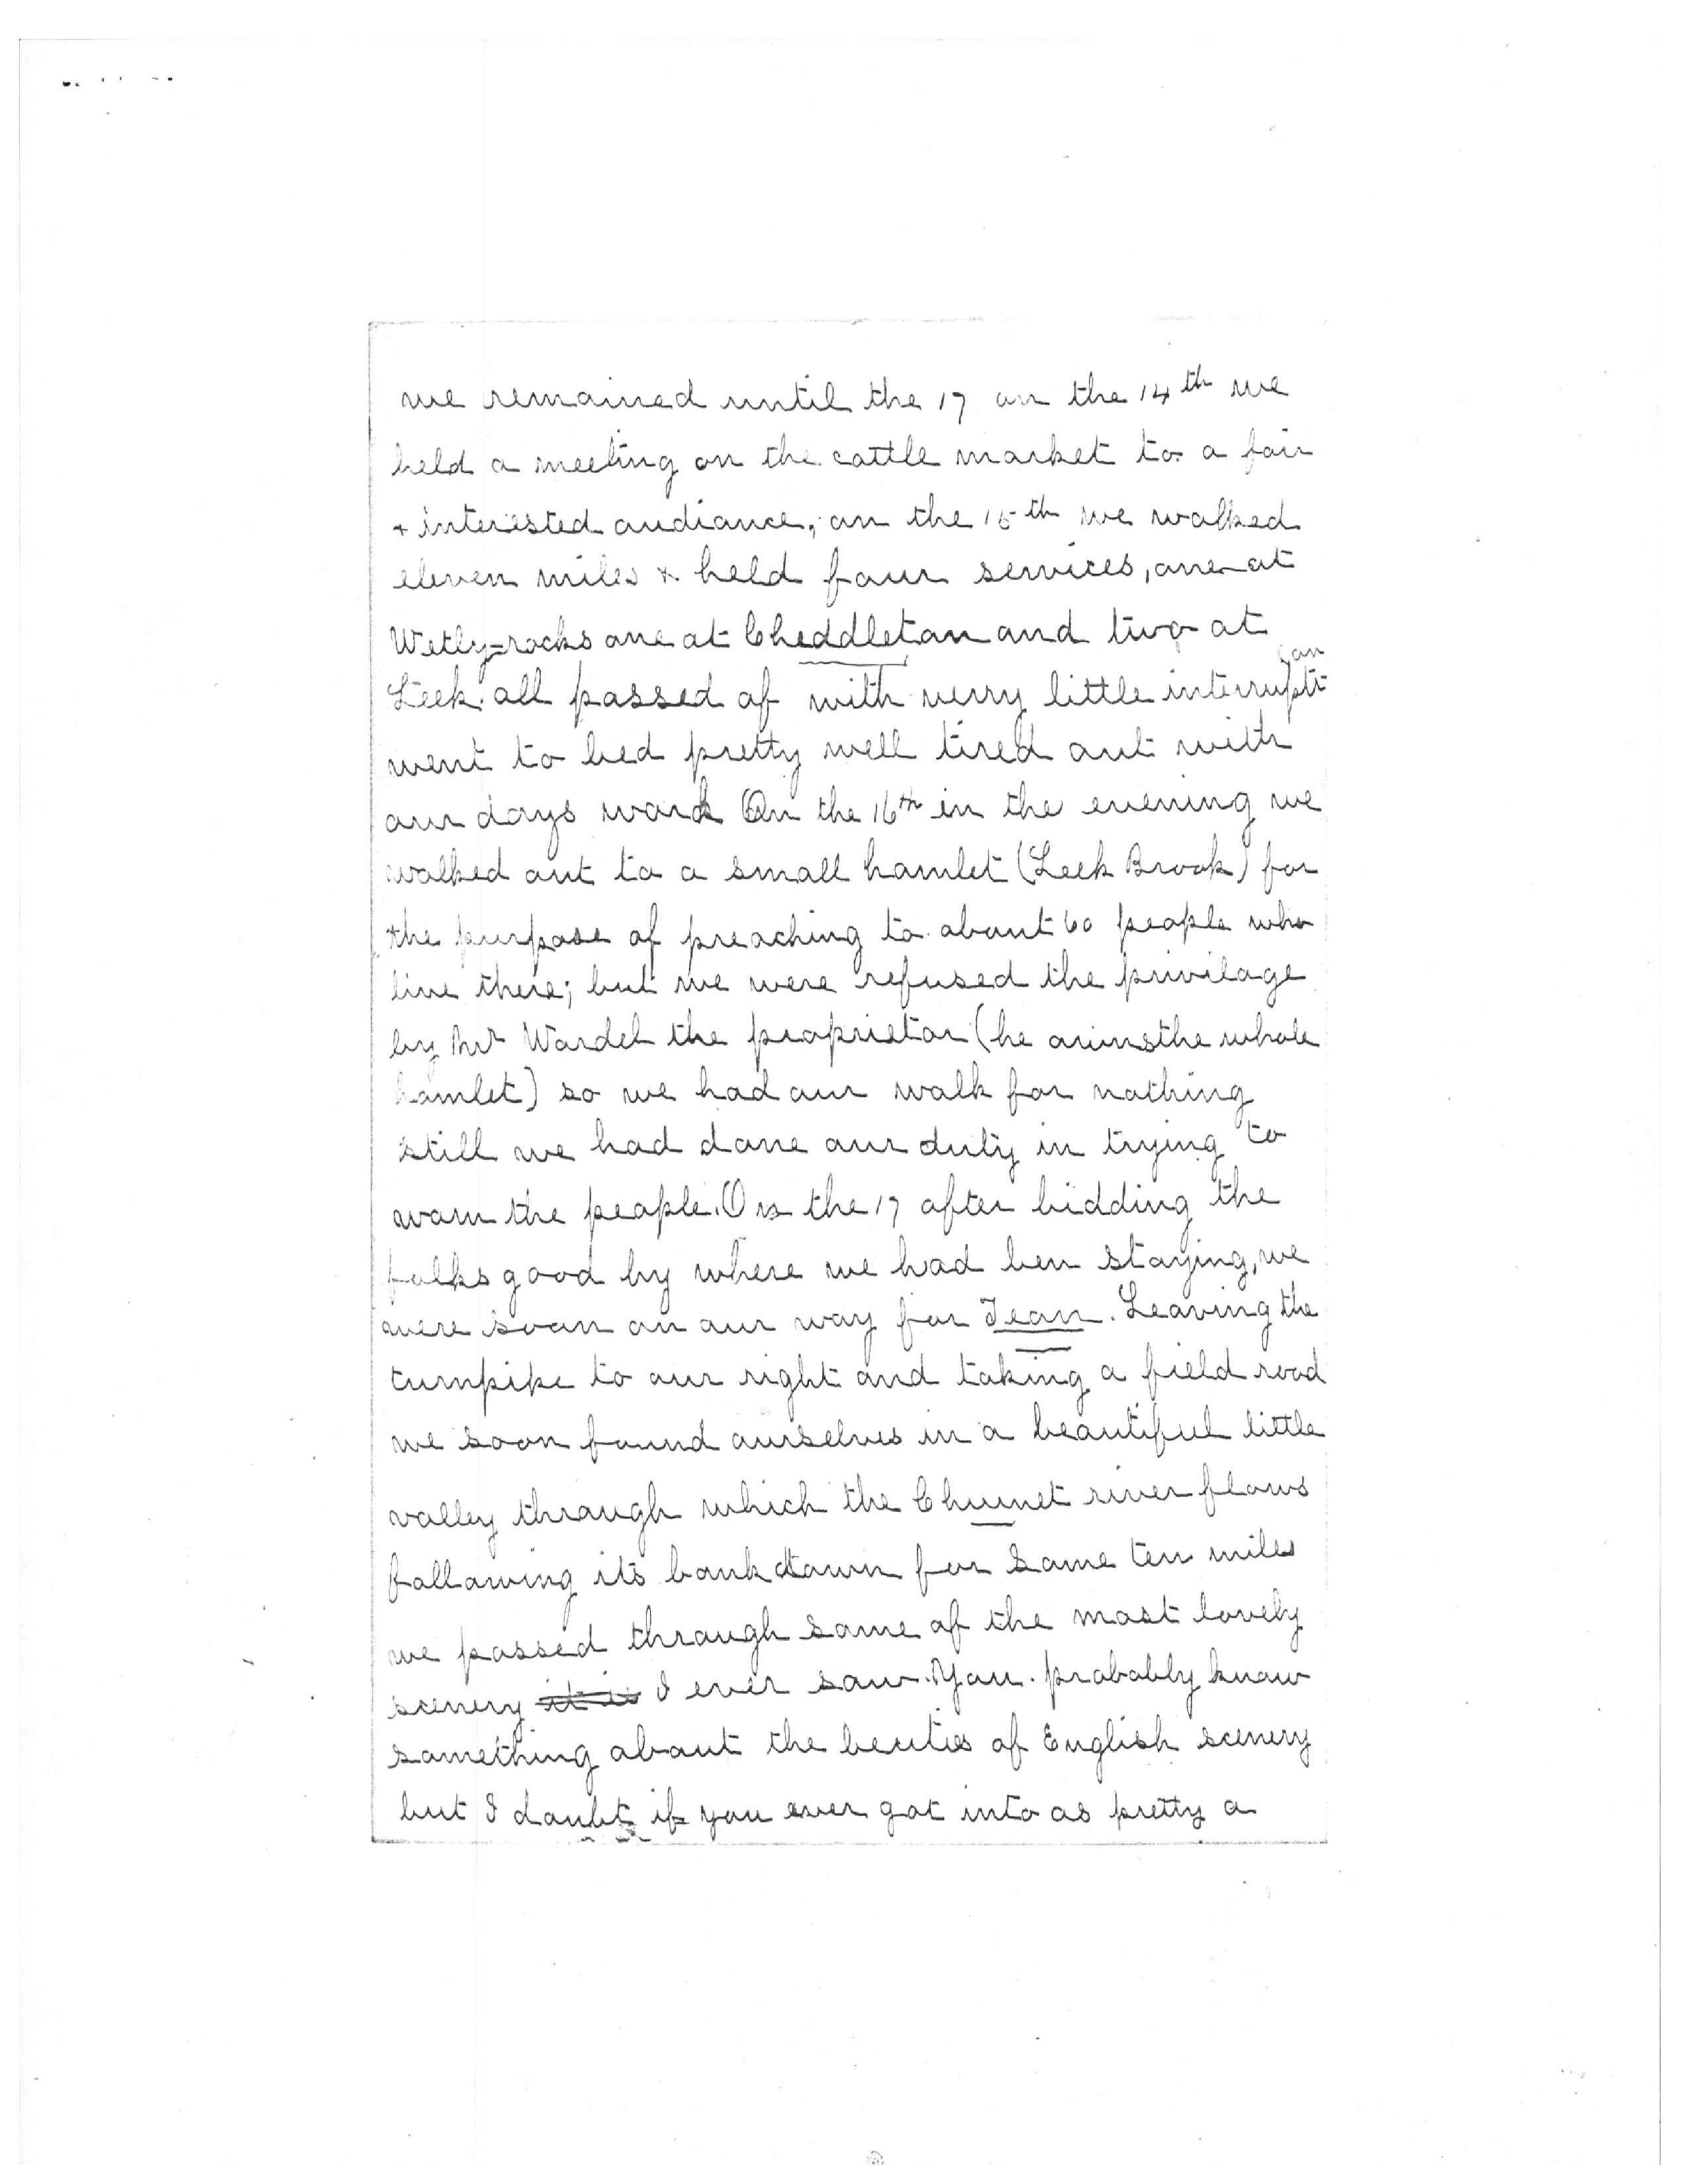 we remained until the 17 on the 14th we
held a meeting on the cattle market to a fair
+ interested audiance, on the 15th we walked
eleven miles & held four services, one at
Wetly-rocks one at Cheddleton and two at
Leek. all passed of with verry little interruption
went to bed pretty well tired out with
our days work On the 16th in the evening we
walked out to a small hamlet (Leek Brook) for
the purpose of preaching to about 60 people who
live there; but we were refused the privilage
by Mr Wardel the propriator (he owns the whole
hamlet) so we had our walk for nothing
still we had done our duty in trying to
warn the people. On the 17 after bidding the
folks good by where we had ben staying, we
were soon on our way for Tean. Leaving the
turnpike to our right and taking a field road
we soon found ourselves in a beautiful little
valley through which the Churnet river flows
following its bank down for some ten miles
we passed through some of the most lovely
scenery it is I ever saw. You probably know
something about the beuties of English scenery
but I doubt if you ever got into as pretty a